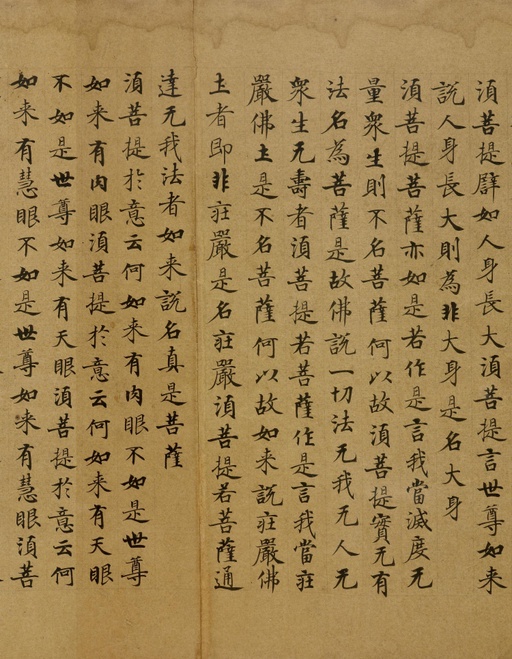 湏菩提辟如人身長大湏菩提言世尊如来
說人身長大則為非大身是名大身
湏菩提菩薩亦如是若作是言我當滅度无
量衆生則不名菩薩何以故湏菩提實无有
法名為菩薩是故佛說一切法无我无人无
衆生无壽者湏菩提若菩薩作是言我當莊
嚴佛土是不名菩薩何以故如来說莊嚴佛
土者即非莊嚴是名莊嚴湏菩提若菩薩通
達无我法者如来說名真是菩薩
湏菩提於意云何如来有肉眼不如是世尊
如来有肉眼湏菩提於意云何如来有天眼
不如是世尊如来有天眼湏菩提於意云何
如来有慧眼不如是世尊如来有慧眼湏菩